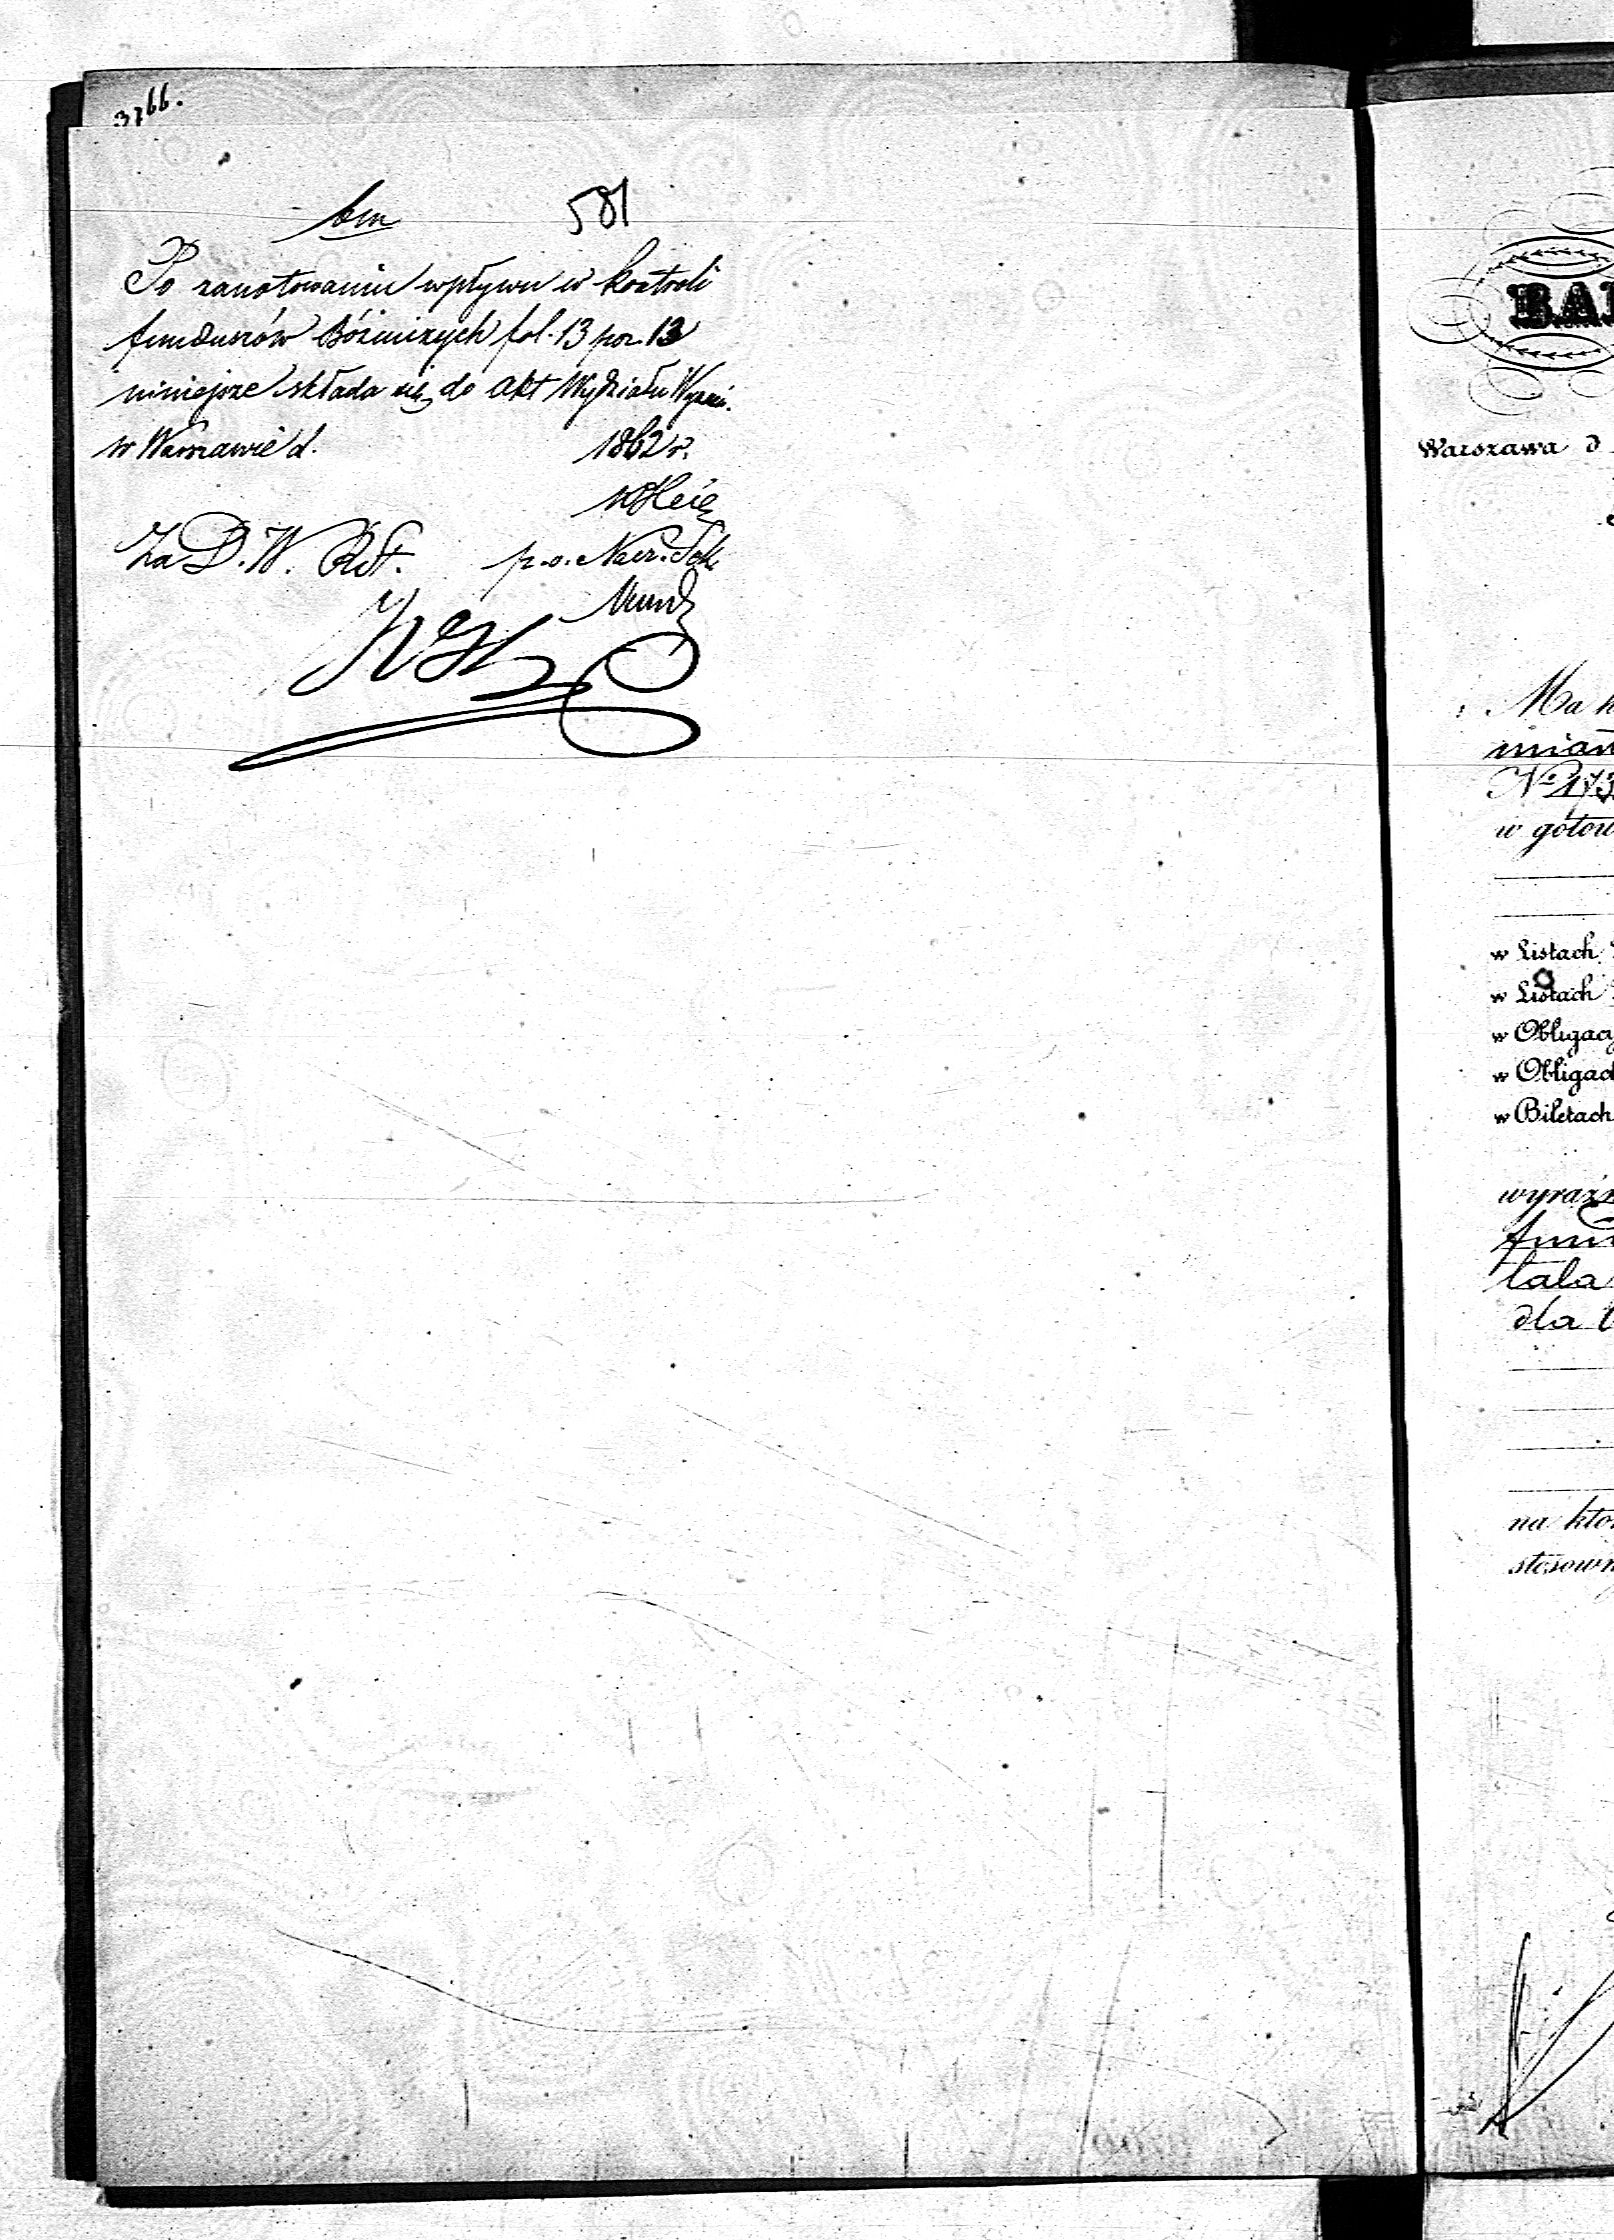 3766.
581
Po zanotowaniu wpływu w kontroli
funduszów Bóżniczych fol. 13 poz. 13
niniejsze składa się do akt Wydziału Wyzn.
w Warszawie d. 1862 r.
Za D. W.
p.o. Nacz. Sek.
BA
Warszawa d
Ma h
mian
№ 173
w gotow
w Listach
w Listach
w Obligacy
w Obligac
w Biletach
wyraźn
fun
tala
dla
na któr
stosown